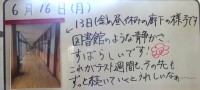 6月16日(月)
13日(金)、昼休みの廊下の様子です
図書館のような静かさ、
すばらしいです!
これがテスト週間も、その先も
ずっと続いていくとうれしいなぁ…